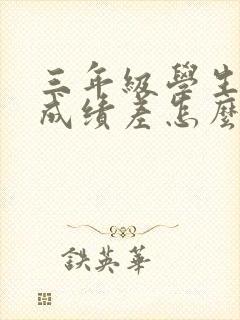 三年級學生
成績差怎麼
鉄英華